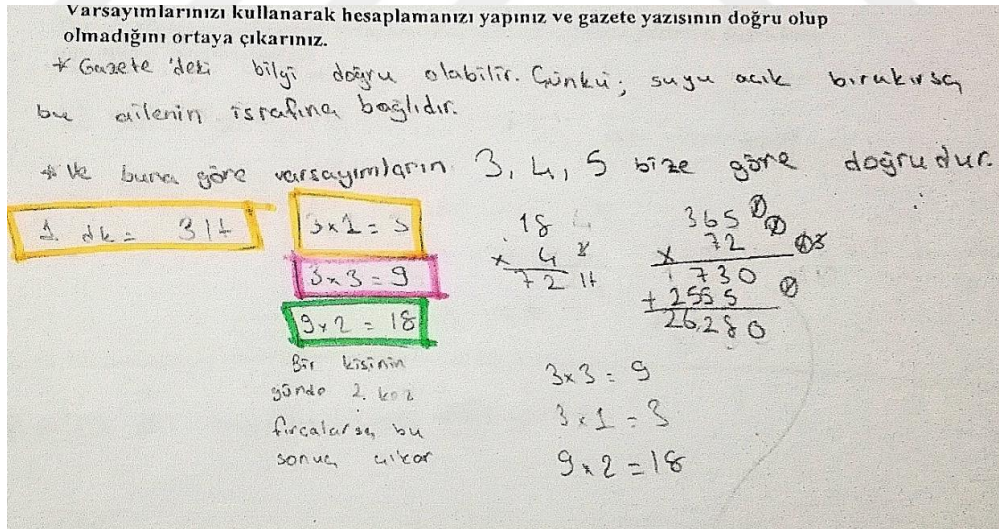 Varsayımlarınızı kullanarak hesaplamanızı yapınız ve gazete yazısının doğru olup
olmadığını ortaya çıkarınız.
* Gazete 'deki bilgi doğru olabilir. Çünkü; suyu açık bırakırsa
bu ailenin israfına bağlıdır.
* Ve buna göre varsayımların 3, 4, 5 bize göre doğrudur.
1 dk = 3 lt
3x1 = 3
3x3 = 9
9x2 = 18
Bir kişinin
günde 2. kez
fırçalarsa bu
sonuç çıkar
18
x 4
72 lt
365
x 72
730
+ 2555
26,280
3x3 = 9
3x1 = 3
9x2 = 18